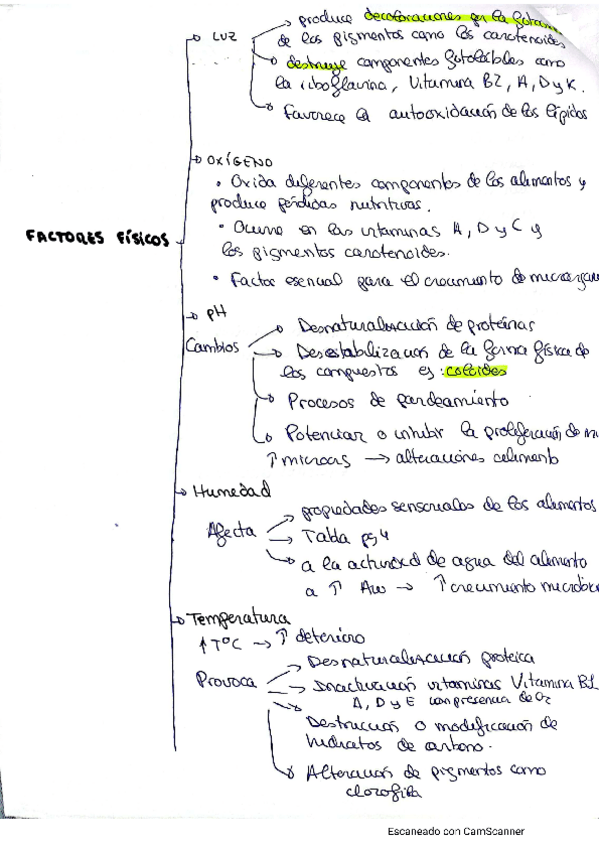 LUZ
produce decoloraciones en la
de los pigmentos como los carotenoides
destruye componentes fotolábiles como
la riboflavina, Vitamina B2, A, D y K.
Favorece la autooxidación de los lípidos
OXÍGENO
• Oxida diferentes componentes de los alimentos y
produce pérdidas nutritivas.
• Ocurre en las vitaminas A, D y C y
los pigmentos carotenoides.
FACTORES FÍSICOS
• Factor esencial para el crecimiento de
pH
Cambios
Desnaturalización de proteínas
Desestabilización de la forma física de
los compuestos ej: coloides
Procesos de pardeamiento
Potenciar o inhibir la proliferación de
↑ microorg → alteraciones
Humedad
Afecta
propiedades sensoriales de los alimentos
Tabla pg 4
a la actividad de agua del alimento
a ↑ Aw → ↑ crecimiento
Temperatura
↑ TºC → ↑ deterioro
Provoca
Desnaturalización proteica
Inactivación vitaminas Vitamina B1
A, D y E con presencia de O2
Destrucción o modificación de
hidratos de carbono.
Alteración de pigmentos como
clorofila
Escaneado con CamScanner